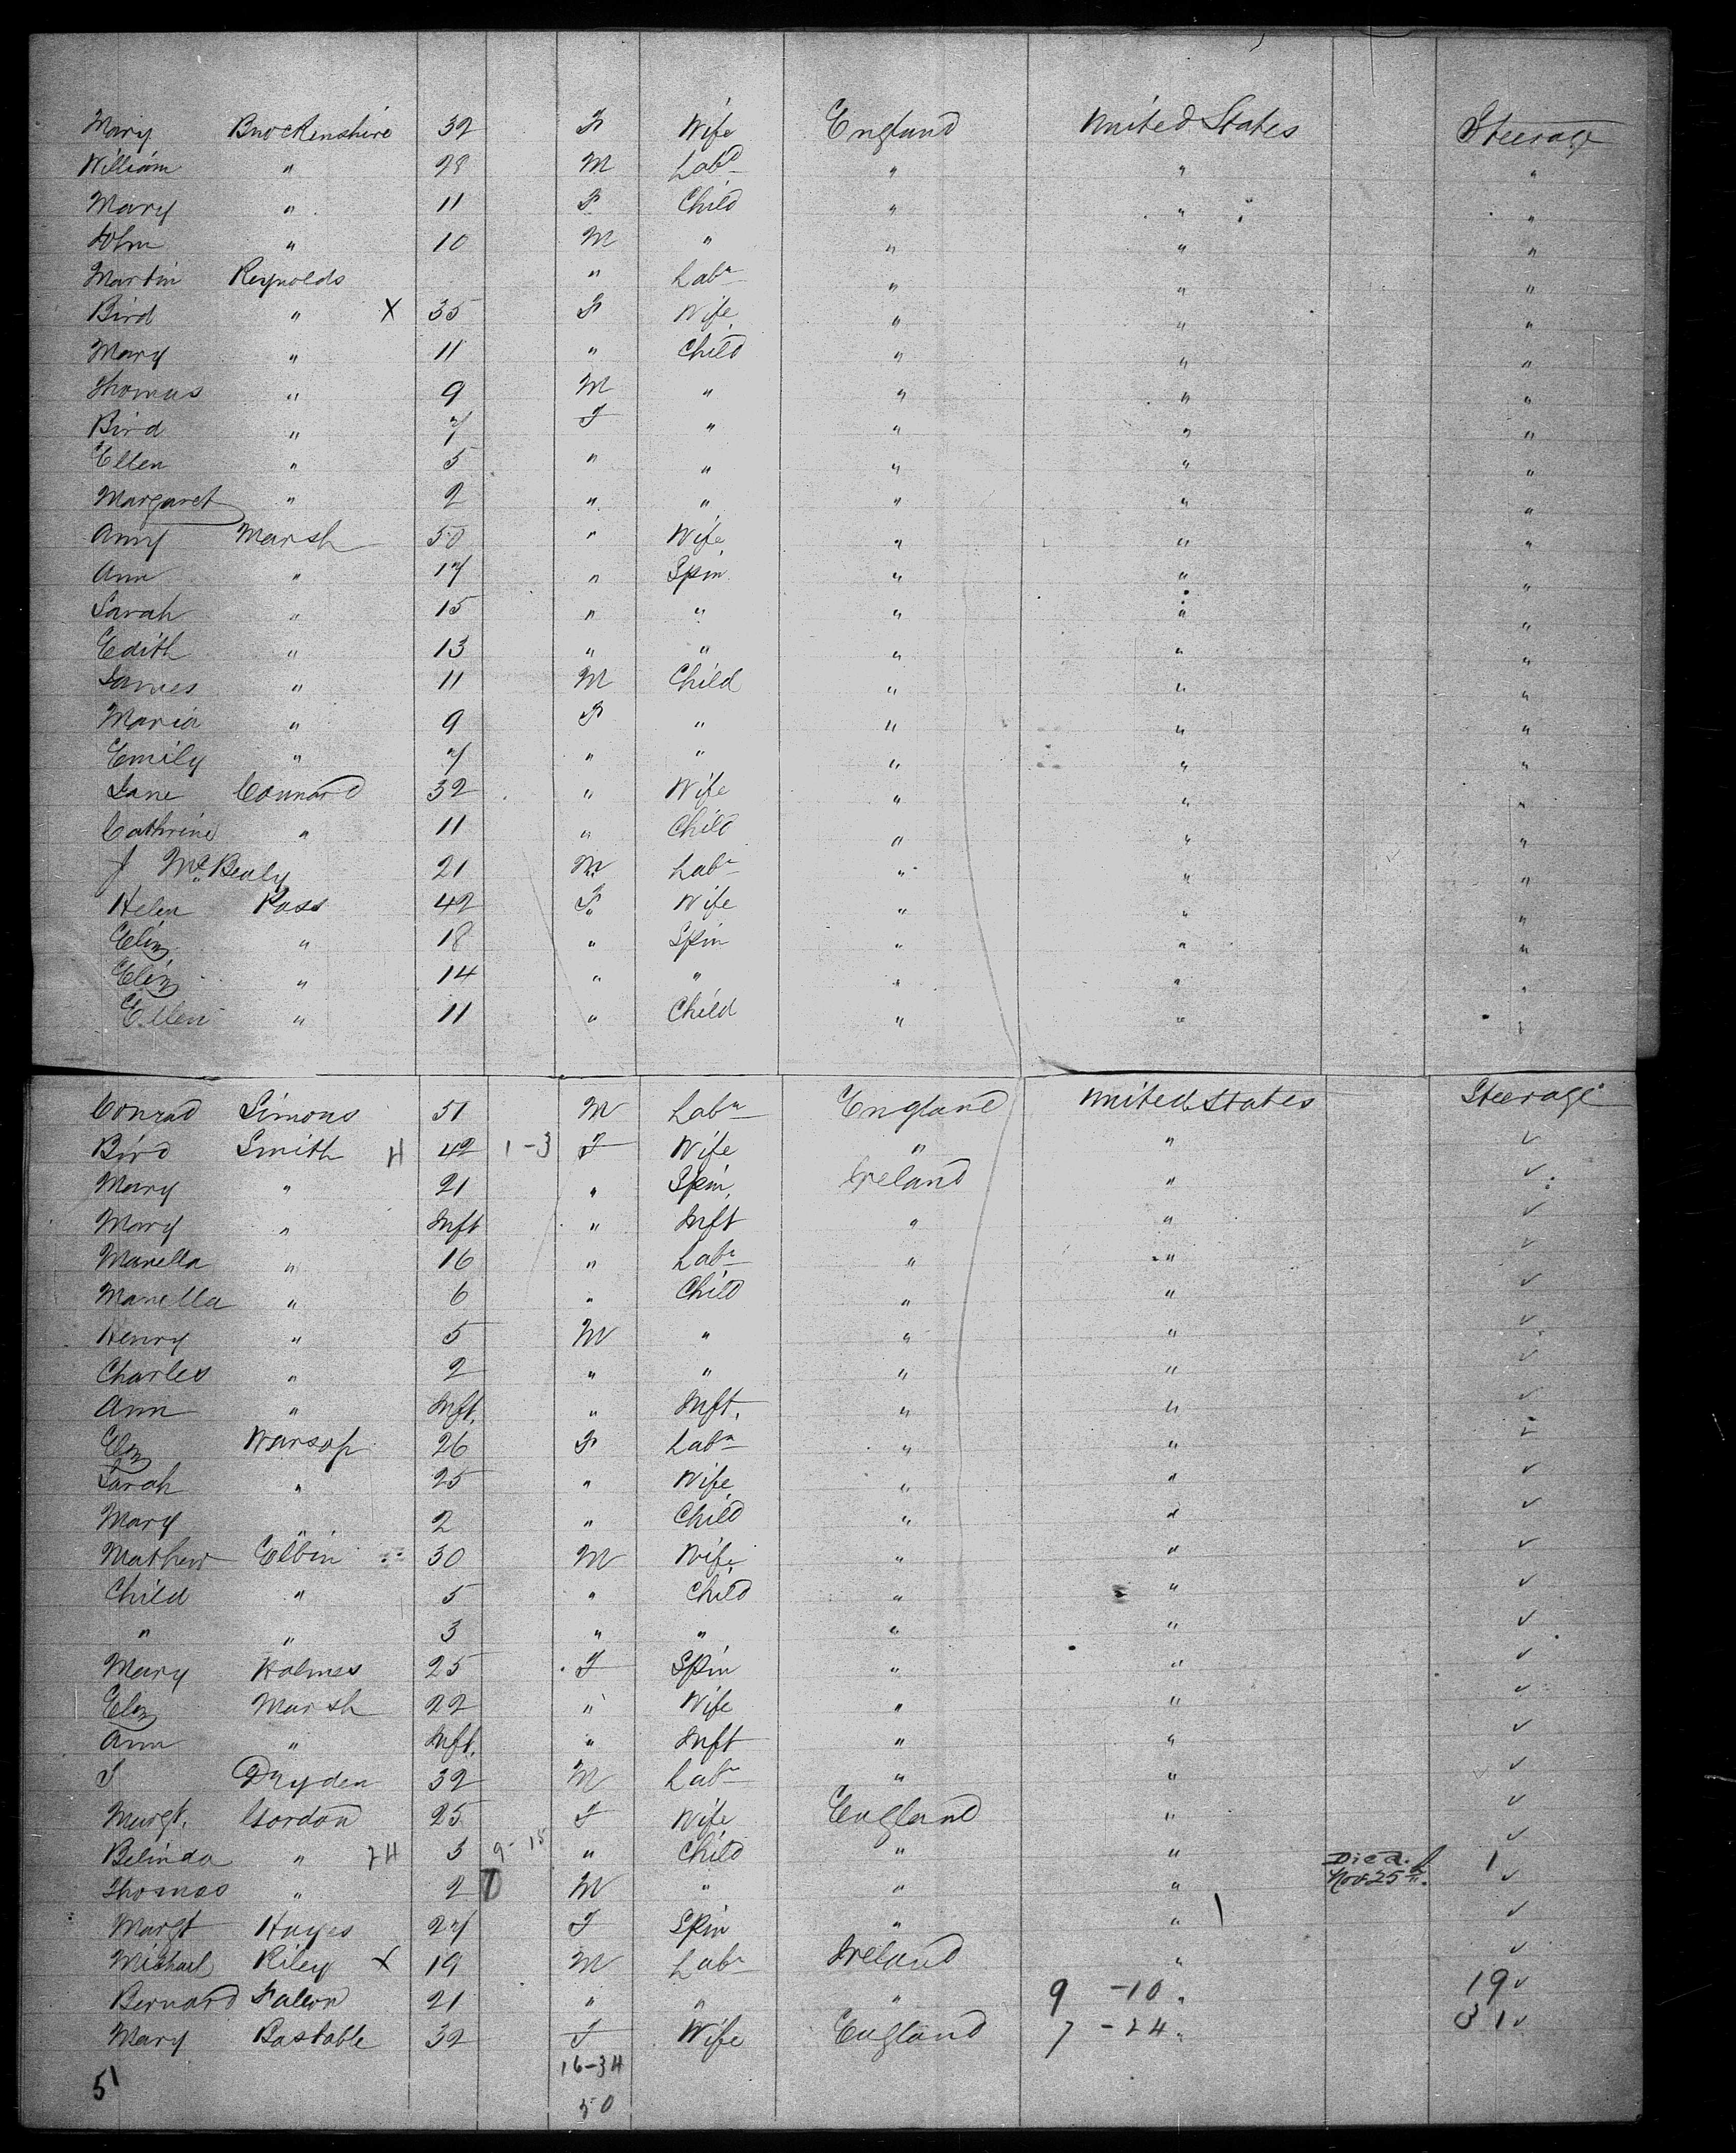 Mary Buockenshire 32 F Wife England United States Steerage
William " 28 M Labr " " "
Mary " 11 F Child " " "
John " 10 M " " " "
Martin Reynolds " Labr " " "
Bird " X 35 F Wife " " "
Mary " 11 " Child " " "
Thomas " 9 M " " " "
Bird " 7 F " " " "
Ellen " 5 " " " " "
Margaret " 2 " " " " "
Amy Marsh 50 " Wife " " "
Ann " 17 " Spin " " "
Sarah " 15 " " " " "
Edith " 13 " " " " "
James " 11 M Child " " "
Maria " 9 F " " " "
Emily " 7 " " " " "
Jane Connard 32 " Wife " " "
Cathrine " 11 " Child " " "
J McBealy 21 M Labr " " "
Helen Pass 42 F Wife " " "
Eliz " 18 " Spin " " "
Eliz " 14 " " " " "
Ellen " 11 " Child " " "
Conrad Simons 51 M Labr England United States Steerage
Bird Smith H 42 1-3 F Wife " " ✓
Mary " 21 " Spin Ireland " ✓
Mary " Inft " Inft " " ✓
Manella " 16 " Labr " " ✓
Manella " 6 " Child " " ✓
Henry " 5 M " " " ✓
Charles " 2 " " " " ✓
Ann " Inft. " Inft. " " ✓
Eliz Warsop 26 F Labr " " ✓
Sarah " 25 " Wife " " ✓
Mary " 2 " Child " " ✓
Mathew Elbin 30 M Wife " " ✓
Child " 5 " Child " " ✓
" " 3 " " " " ✓
Mary Holmes 25 F Spin " " ✓
Eliz Marsh 22 " Wife " " ✓
Ann " Inft. " Inft " " ✓
J Dryden 32 M Labr " " ✓
Margt. Gordon 25 F Wife England " ✓
Belinda " 3 9-15 " Child " " ✓
Thomas " 2 M " " " Died Nov 25th. 1 ✓
Margt Hayes 27 F Spin " " ✓
Michael Riley X 19 M Labr Ireland " ✓
Bernard Fallon 21 " " " 9 -10 " 19 ✓
Mary Bastable 32 F Wife England 7 -24 " 31 ✓
16-34
51 50